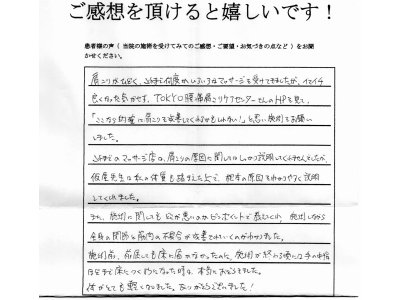 ご感想を頂けると嬉しいです！
患者様の声（当院の施術を受けてみてのご感想・ご要望・お気づきの点など）をお聞
かせください。
肩こりがひどく、これまで何度かいろいろなマッサージを受けてきましたが、イマイチ
良くなった気がせず、TOKYO腰痛肩こりケアセンターさんのHPを見て、
「ここなら的確に肩こりを改善してくれるかもしれない！」と思い施術をお願い
しました。
これまでのマッサージ店は、肩こりの原因に関してはしっかり説明してくれませんでしたが、
先生は私の体質も踏まえた上で、根本の原因をわかりやすく説明
してくれました。
また、施術に関しても、どこが悪いのかピンポイントで教えてくれ、施術しながら
全身の関節と筋肉の不具合が改善されていくのがわかりました。
施術前、前屈しても床に届かなかったのに、施術が終わる頃には手の
床につくようになった時は、本当におどろきました。
体がとても軽くなりました。ありがとうございました！